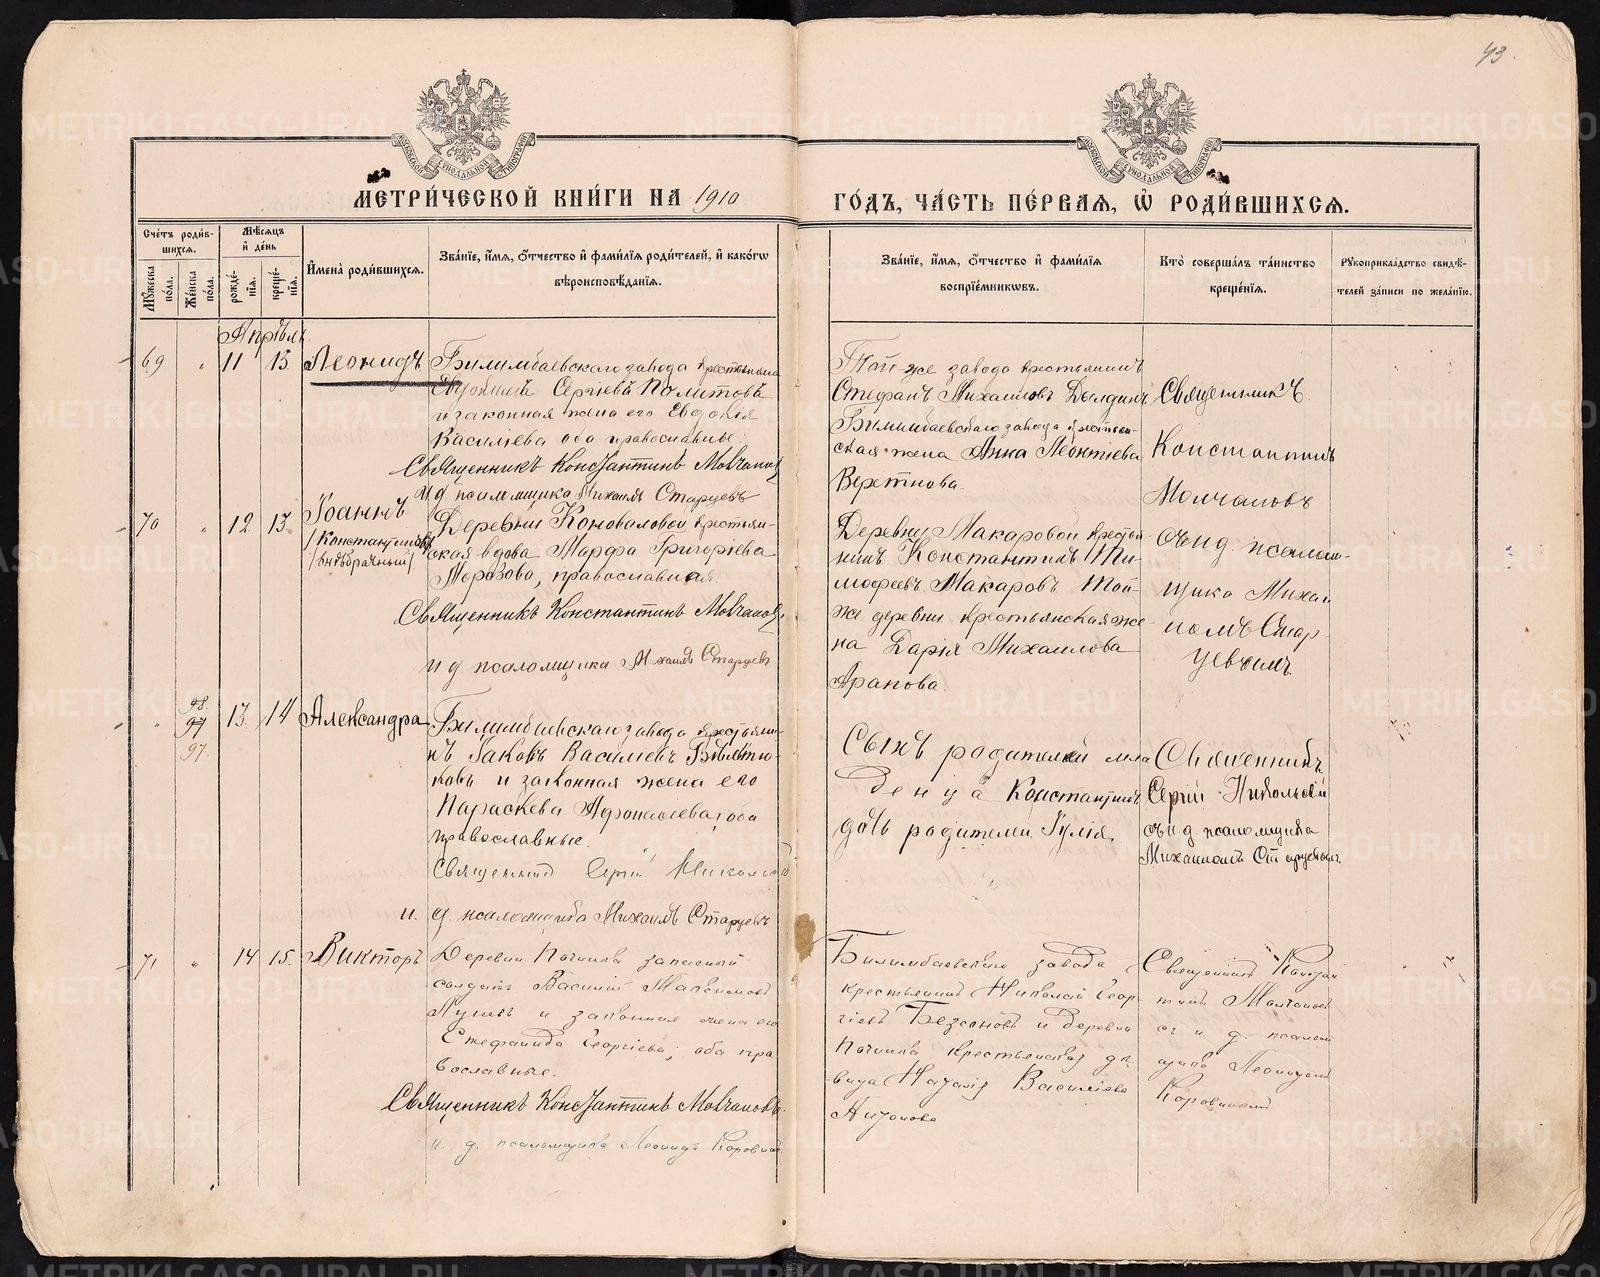 43.
МЕТРИ́ЧЕСКОЙ КНИ́ГИ НА 1910
ГО́ДЪ, ЧА́СТЬ ПЕ́РВАЯ, Ѡ҆ РОДИ́ВШИХСЯ.
Сче́тъ роди́в-
шихся.
Мѣ́сяцъ
и҆ де́нь
Му́жеска
по́ла.
Же́нска
по́ла.
рожде́-
нїя.
креще́-
нїя.
И҆мена̀ роди́вшихся.
Зва́нїе, и҆́мя, ѻ҆́тчество и҆ фами́лїя роди́телей, и҆ како́гѡ
вѣроисповѣ́данїя.
Зва́нїе, и҆́мя, ѻ҆́тчество и҆ фами́лїя
воспрїе́мникѡвъ.
Кто̀ соверша́лъ та́инство
креще́нїя.
Рꙋкоприкла́дство свидѣ́-
телей за́писи по жела́нїю.
Апрѣль
69 " 11 13. Леонидъ
Билимбаевскаго завода крестьянинъ
Сергіевъ
и законная жена его Евдокія
Василіева оба православные.
Священникъ Константинъ Молчановъ
И д псаломщика Михаилъ Старцевъ
Той-же завода крестьянинъ
Стефанъ Михаиловъ Дылдинъ
Билимбаевскаго завода крестьян-
ская жена Анна Леонтіева
Священникъ
Константинъ
Молчановъ
съ и д. псалом-
щика Михаи
ломъ Стар-
цевымъ.
70 " 12 13. Іоаннъ
/Константиновъ/
/внѣбрачный/
Деревни Коноваловой крестьян-
ская вдова Марфа Григоріева
Морозова, православная.
Священникъ Константинъ Молчановъ
И д псаломщика Михаилъ Старцевъ
Деревни Макаровой крестья
нинъ Константинъ Ти-
мофеевъ Макаровъ Той-
же деревни крестьянская же-
на Дарія Михаилова
Арапова.
" 98 97 97. 13. 14 Александра
Билимбаевскаго завода крестьяни-
нъ Іаковъ Василіевъ
и законная жена его
Параскева Афонасіева, оба
православные.
Священникъ Сергій Никольскій
и. д. псаломщика Михаилъ Старцевъ
Сынъ родителей мла
денца Константинъ
дочь родителей Іулія.
Священникъ
Сергій Никольскій
съ и д. псаломщика
Михаиломъ Старцевымъ.
71 " 14 15. Викторъ
Деревни Починка запасный
солдатъ Василій Максимовъ
и законная жена его
Стефанида Георгіева, оба пра
вославные.
Священникъ Константинъ Молчановъ.
и. д. псаломщика Леонидъ Коровинъ
Билимбаевскаго завода
крестьянинъ Николай Геор-
гіевъ Безсоновъ и деревни
Починка крестьянская дѣ-
вица Наталія Василіева
Антонова
Священникъ Констан
тинъ Молчановъ
съ и д. псалом
щика Леонидомъ
Коровинымъ